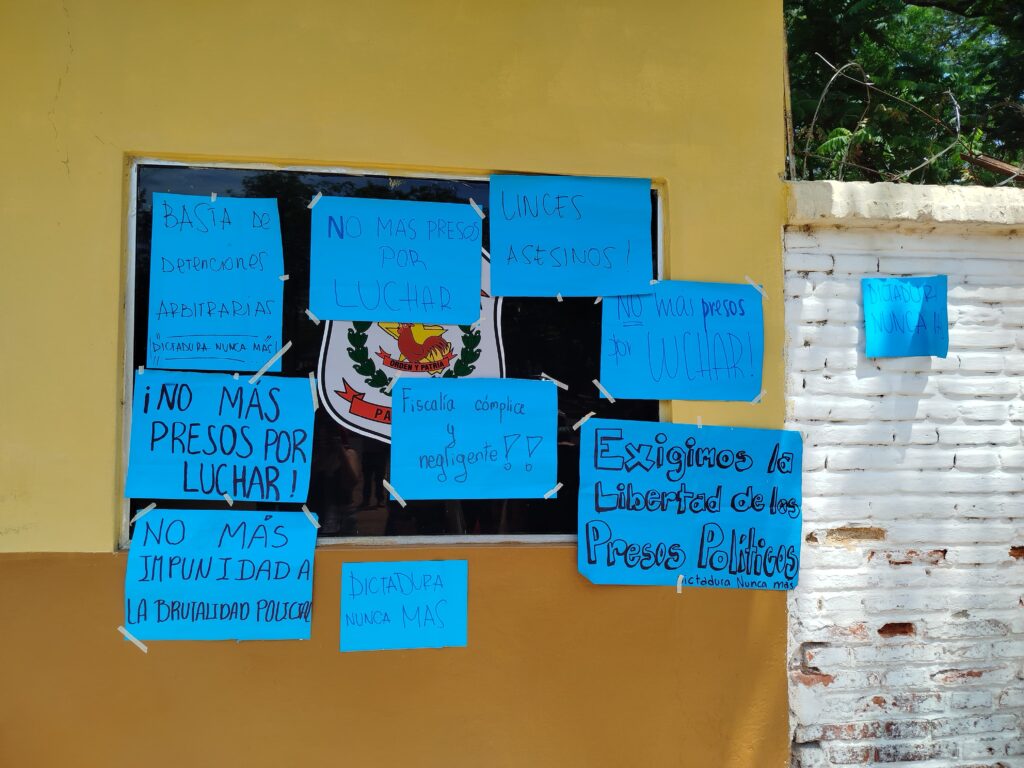 BASTA DE
DETENCIONES
ARBITRARIAS
DICTADURA NUNCA MÁS!
NO MAS PRESOS
POR
LUCHAR
LINCES
ASESINOS!
NO mas presos
por LUCHAR!
DICTADURA
NUNCA
ORDEN Y PATRIA
PA
¡NO MÁS
PRESOS POR
LUCHAR!
Fiscalía cómplice
y
negligente!!
Exigimos la
Libertad de los
Presos Políticos
Dictadura Nunca más
NO MÁS
IMPUNIDAD A
LA BRUTALIDAD POLICIAL
DICTADURA
NUNCA MAS